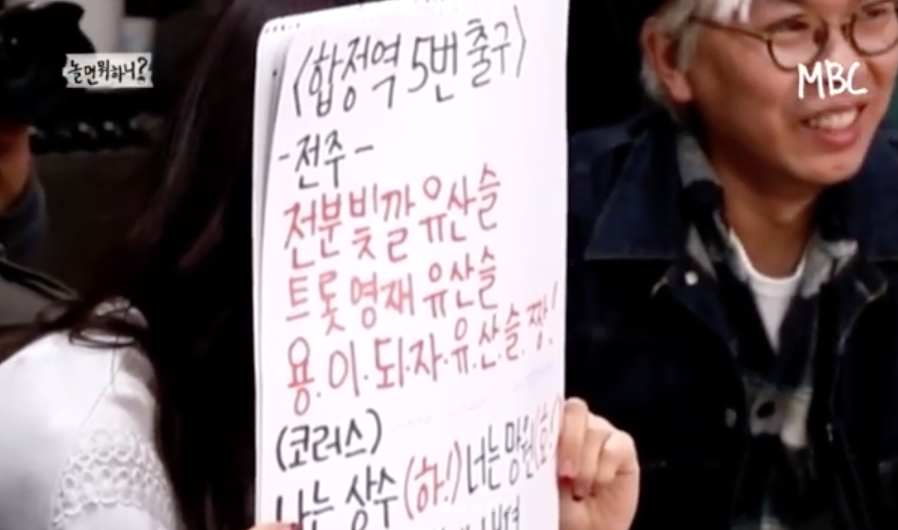 놀면뭐하니?
MBC
<합정역 5번 출구>
-전주-
전분빛깔 유산슬
트롯영재 유산슬
용.이.되.자.유.산.슬.짱!
(코러스)
나는 상수(하!) 너는 망원(호!)